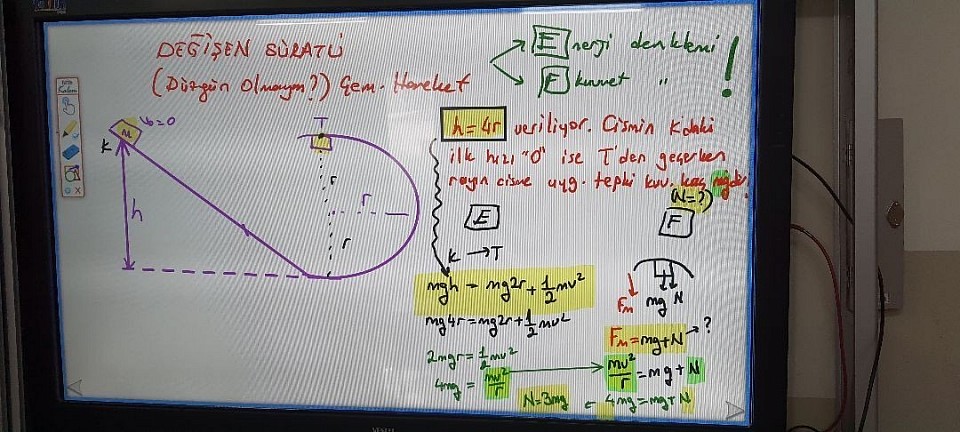 DEĞİŞEN SÜRATLİ
(Düzgün Olmayan?) Çem. Hareket
Enerji denklemi
Kuvvet " !
M
V₀=0
K
h
T
r
r
r
h=4r veriliyor. Cismin K'daki
ilk hızı "0" ise T'den geçerken
rayın cisme uyg. tepki kuv. kaç mgdir.
(N=?)
E
K → T
mgh = mg2r + 1/2 mv²
mg4r = mg2r + 1/2 mv²
2mgr = 1/2 mv²
4mg = mv²/r
F
Fm mg N
Fm = mg+N → ?
mv²/r = mg+N
4mg = mg+N
N=3mg